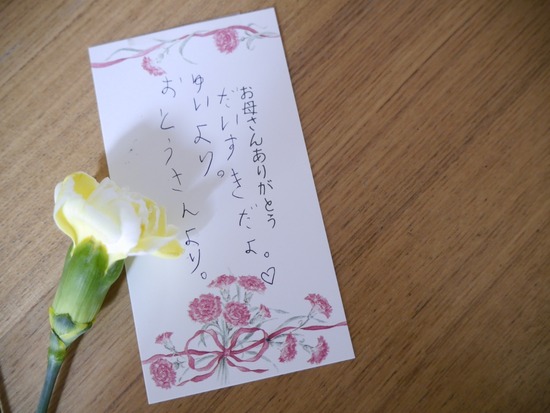 お母さんありがとう
だいすきだよ。♡
ゆいより。
おとうさんより。